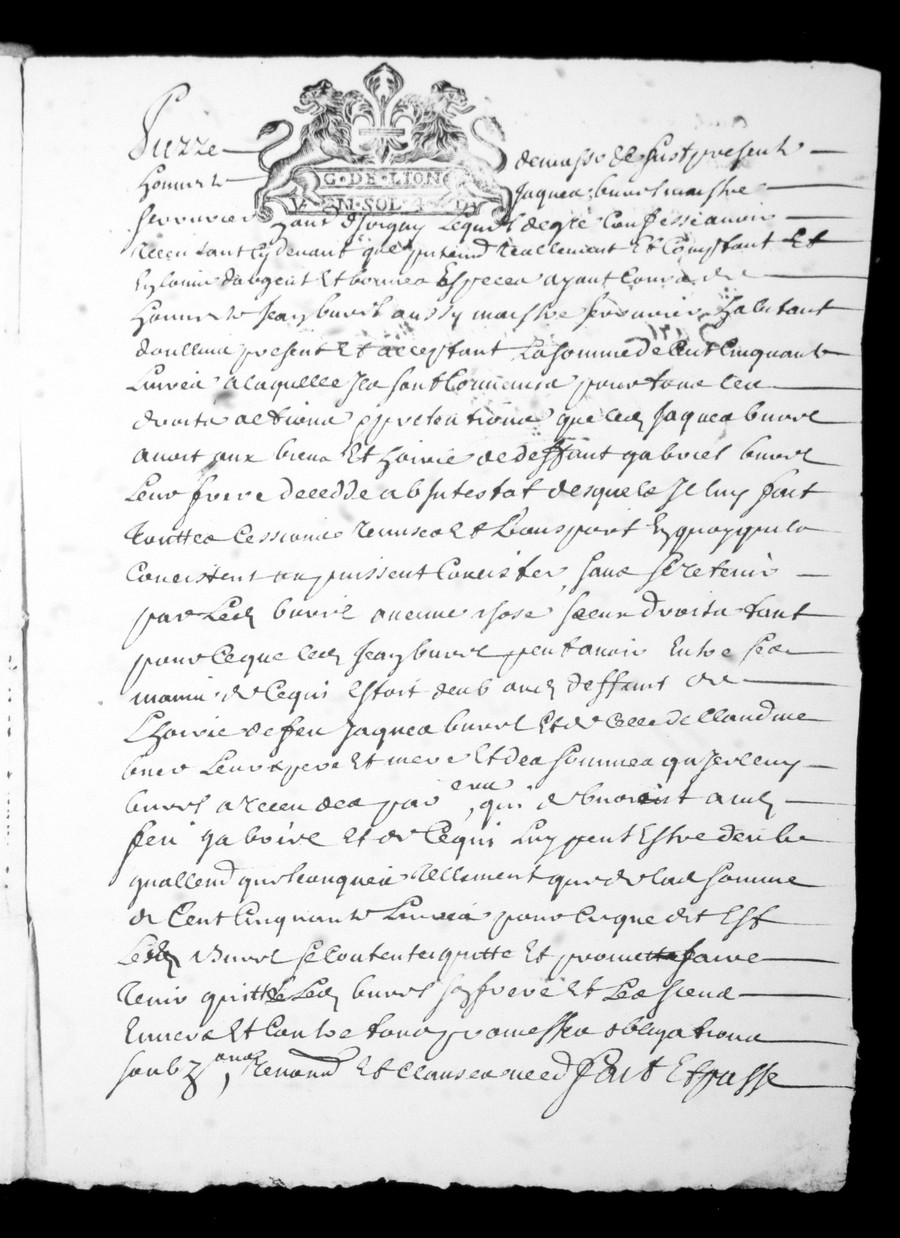 G·DE·LION
M·SOL·4·D
demasso de sus present
Honneste Jaques burel maistre
serrurier hant d'Irigny lequel de gré confesse avoir
receu tant cydevant que présentement reallement et comptant et
en louis d'argent et bonnes especes ayant cours de
Honneste Jean burel aussy maistre serrurier habitant
doullins present et acceptant la somme de Cent Cinquante
Livres a laquelle Ils sont Convenus pour tous les
droits actions et pretentions que led Jaques burel
avoit aux biens Et hoirie de deffunt gabriel burel
Leur frere decedde abintestat desquels Il luy fait
touttes Cessions remises et transport En quoy qu'ils
Concistent ou puissent Concister, sans se retenir
par Led burel aucune chose sceux droits tant
pour Ce que led Jean burel peut avoir Entre ses
mains de Ce qui Estoit deub aud deffunt de
L'hoirie de feu Jaques burel Et de Celle de Claudine
leurs pere Et mere Et des sommes qu'Icelluy
burel a receu des par eux qui debvoient aud
feu gaboire Et de Ce qui Luy peut Estre deub
quallend quelconques tellement que de lad somme
de Cent Cinquante Livres pour Ce que dit Est
Led Burel se Contente quitte Et promet faire
tenir quitte Led burel son frere Et Les siens
Envers Et Contre tous promesses obligations
soubz ans renond Et Clauses necess fait Et passe